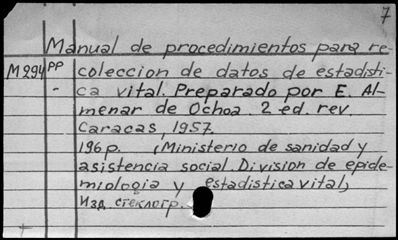 7
Manual de procedimientos para re-
M294 PP coleccion de datos de estadisti-
- ca vital. Preparado por E. Al-
menar de Ochoa. 2 ed. rev.
Caracas, 1957.
196p. (Ministerio de sanidad y
asistencia social. Division de epide-
miologia y estadistica vital)
Изд. стеклогр.
+